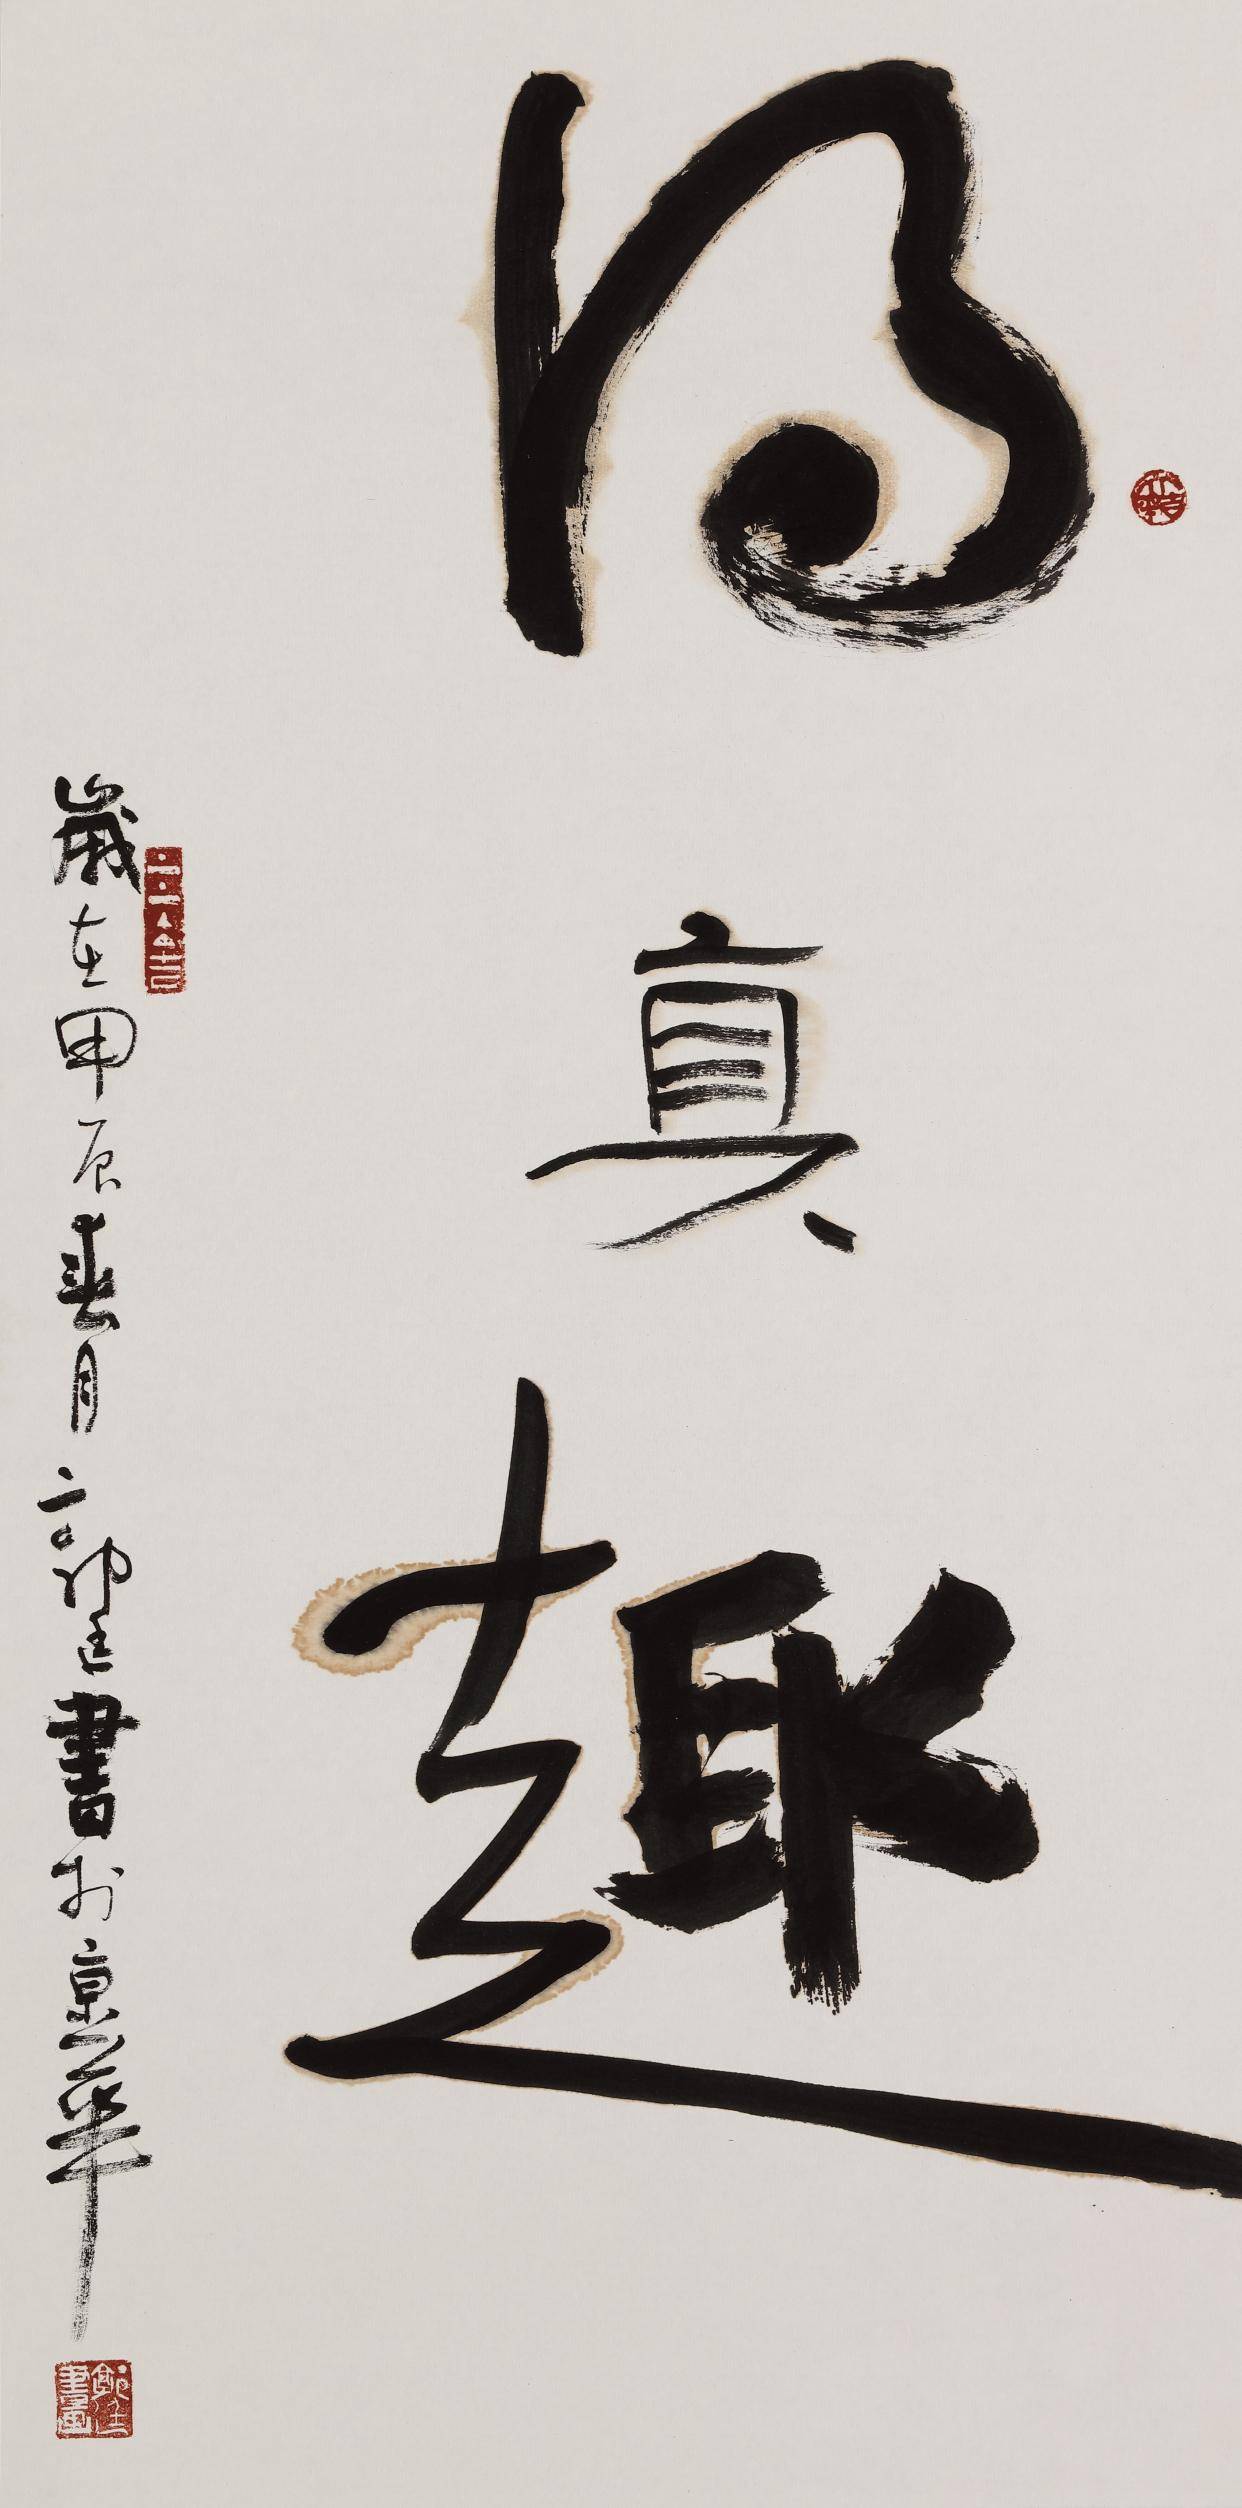 得真趣
歲在甲辰春月 書於京華